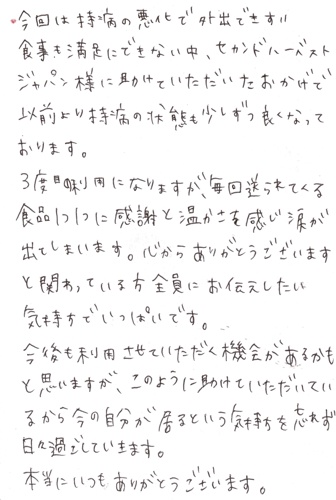 今回は持病の悪化で外出できず
食事も満足にできない中、セカンドハーベスト
ジャパン様に助けていただいたおかげで
以前より持病の状態も少しずつ良くなって
おります。
3度目利用になりますが、毎回送られてくる
食品1つ1つに感謝と温かさを感じ涙が
出てしまいます。心からありがとうございます
と関わっている方全員にお伝えしたい
気持ちでいっぱいです。
今後も利用させていただく機会があるかも
と思いますが、このように助けていただいてい
るから今の自分が居るという気持ちを忘れず
日々過ごしていきます。
本当にいつもありがとうございます。